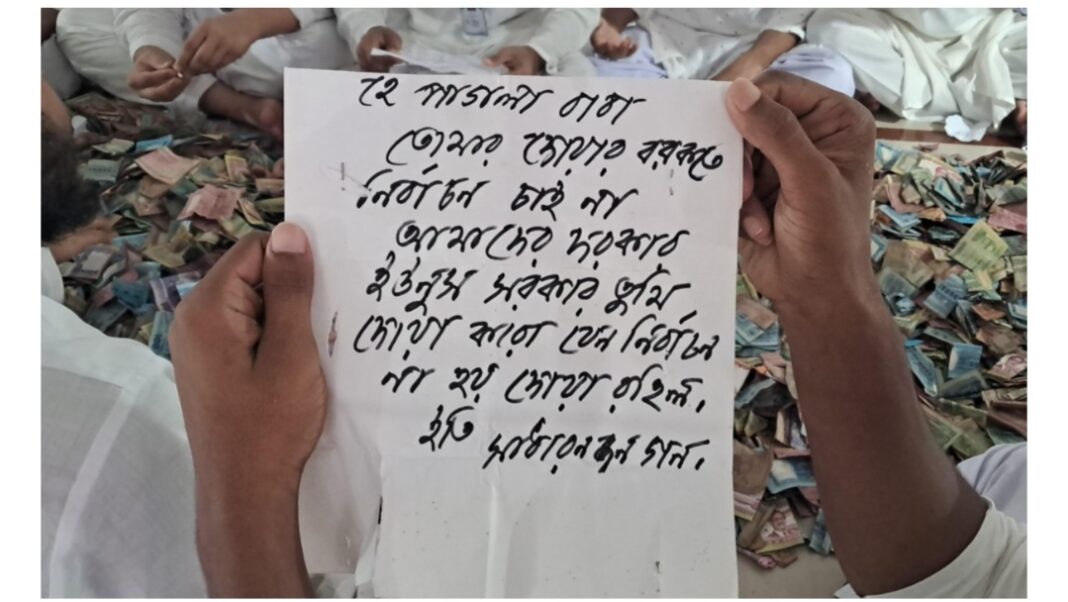 হে পাগলা বাবা
তোমার দোয়ার বরকতে
নির্বাচন চাই না
আমাদের দরকার
ইউনুস সরকার তুমি
দোয়া করো যেন নির্বাচন
না হয় দোয়া রহিল।
ইতি সাধারন জন গন।